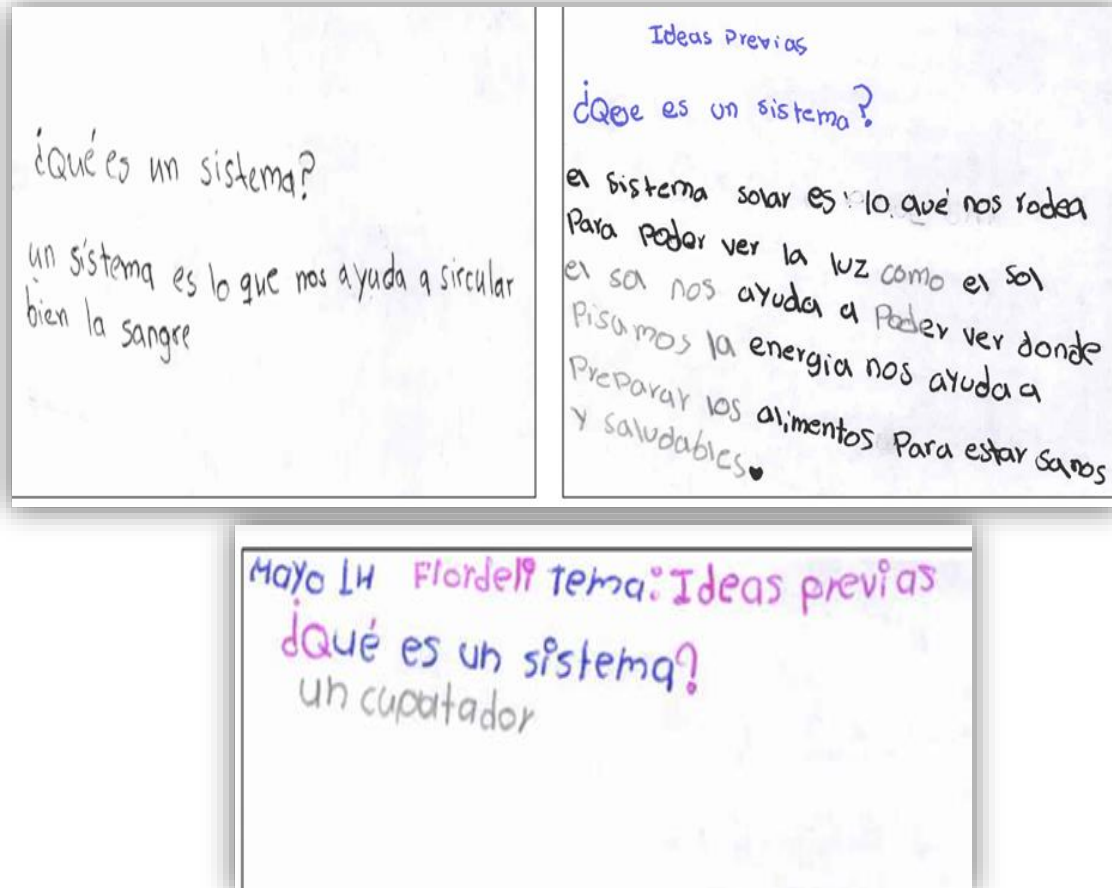 ¿Qué es un sistema?
un sístema es lo que nos ayuda a sircular
bien la sangre
Ideas Previas
¿Qeue es un sistema?
el sistema solar es: lo qué nos rodea
Para poder ver la luz como el sol
el sol nos ayuda a Poder ver donde
Pisamos la energia nos ayuda a
Preparar los alimentos Para estar sanos
y saludables.
Mayo 14 Flordeli tema: Ideas previas
¿Qué es un sistema?
un cupatador